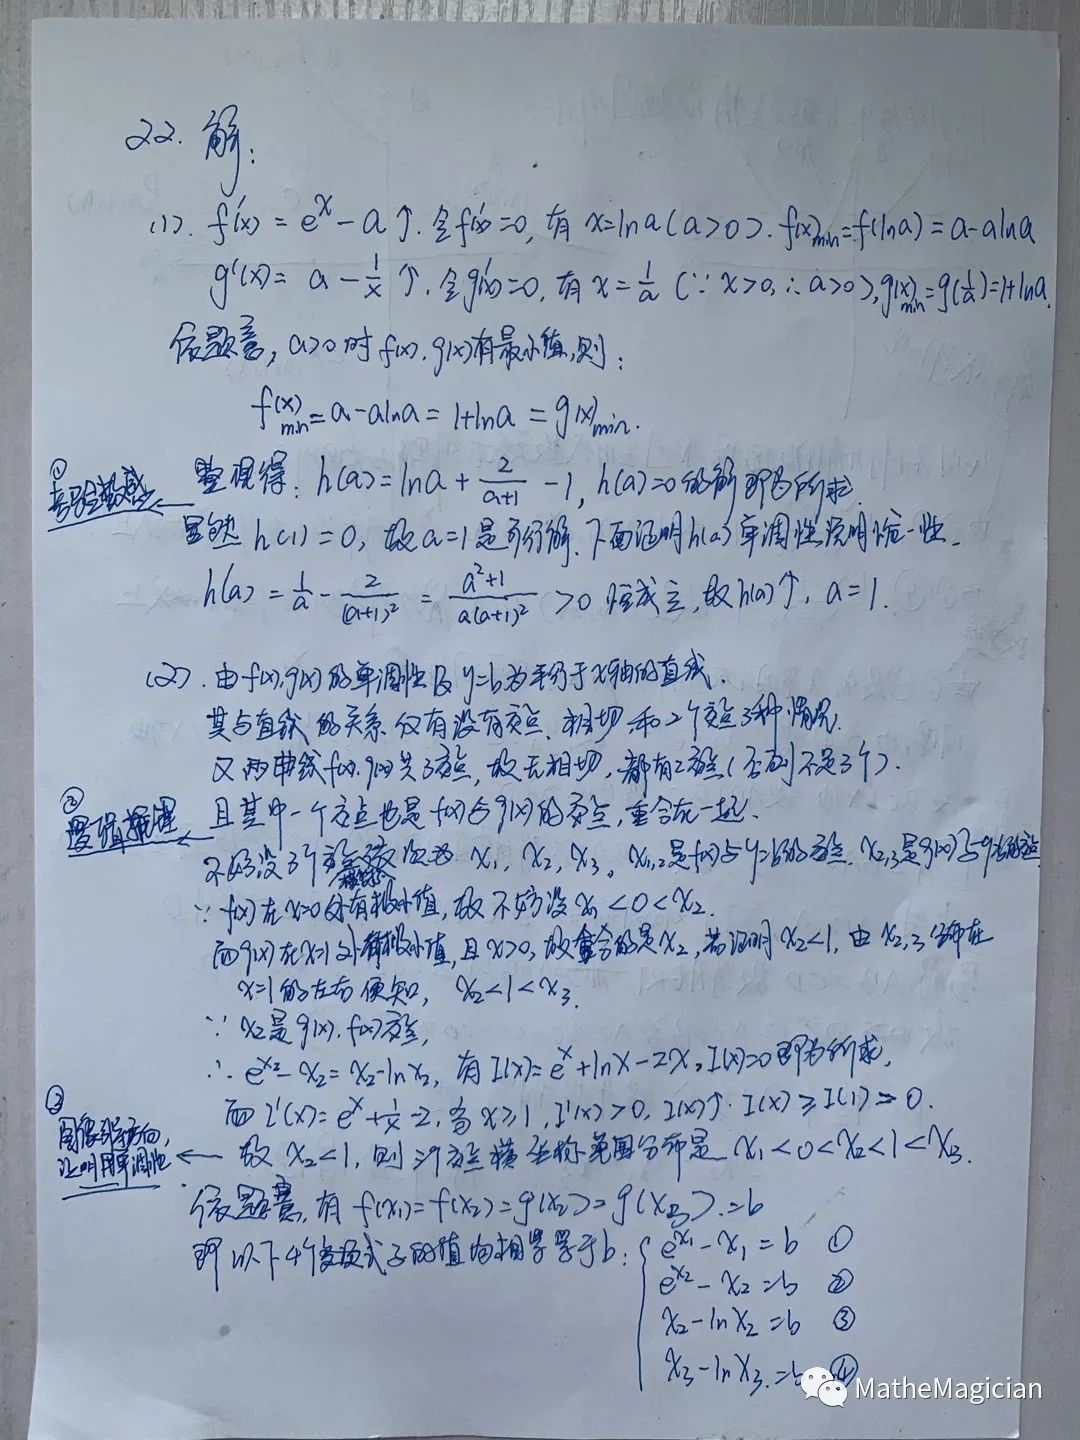 22. 解:
(1). f'(x) = e^x - a ↑. 令f'(x)=0, 有 x=lna (a>0). f(x)min=f(lna)=a-alna
g'(x) = a - 1/x ↑. 令g'(x)=0, 有 x=1/a (∵x>0,∴a>0), g(x)min=g(1/a)=1+lna.
依题意, a>0时 f(x).g(x)有最小值,则:
f(x)min = a-alna = 1+lna = g(x)min.
①
考验敏感
整理得: h(a)=lna + 2/(a+1) - 1, h(a)=0的解即为所求
显然 h(1)=0, 故a=1是可行解. 下面证明h(a)单调性说明唯一性.
h'(a) = 1/a - 2/(a+1)² = (a²+1)/(a(a+1)²) >0 恒成立, 故h(a)↑, a=1.
(2). 由f(x),g(x)的单调性及y=b为平行于x轴的直线.
其与直线的关系仅有没有交点、相切、和2个交点3种情况.
又两曲线f(x).g(x)共3交点, 故无相切, 都有2交点(否则不足3个).
②
逻辑推理
且其中一个交点也是f(x)与g(x)的交点, 重合在一起.
不妨设3个交点 依次为 x₁, x₂, x₃, x₁,₂是f(x)与y=b的交点. x₂,₃是g(x)与y=b的交点
∵ f(x)在x=0处有极小值, 故不妨设 x₁<0<x₂.
而g(x)在x=1处有极小值, 且x>0, 故重合的是x₂, 若证明x₂<1, 由x₂,₃分布在
x=1的左右便知, x₂<1<x₃.
∵ x₂是g(x).f(x)交点,
∴ e^x₂-x₂=x₂-lnx₂, 有 I(x)=e^x+lnx-2x, I(x)=0即为所求,
而 I'(x)=e^x+1/x-2, 当x≥1, I'(x)>0, I(x)↑. I(x)≥I(1)>0.
③
图像引方向,
证明用单调性
故 x₂<1, 则三个交点横坐标范围分布是 x₁<0<x₂<1<x₃.
依题意, 有 f(x₁)=f(x₂)=g(x₂)=g(x₃)=b
即以下4个 式子的值均相等等于b:
e^x₁-x₁=b ①
e^x₂-x₂=b ②
x₂-lnx₂=b ③
x₃-lnx₃=b ④
MatheMagician